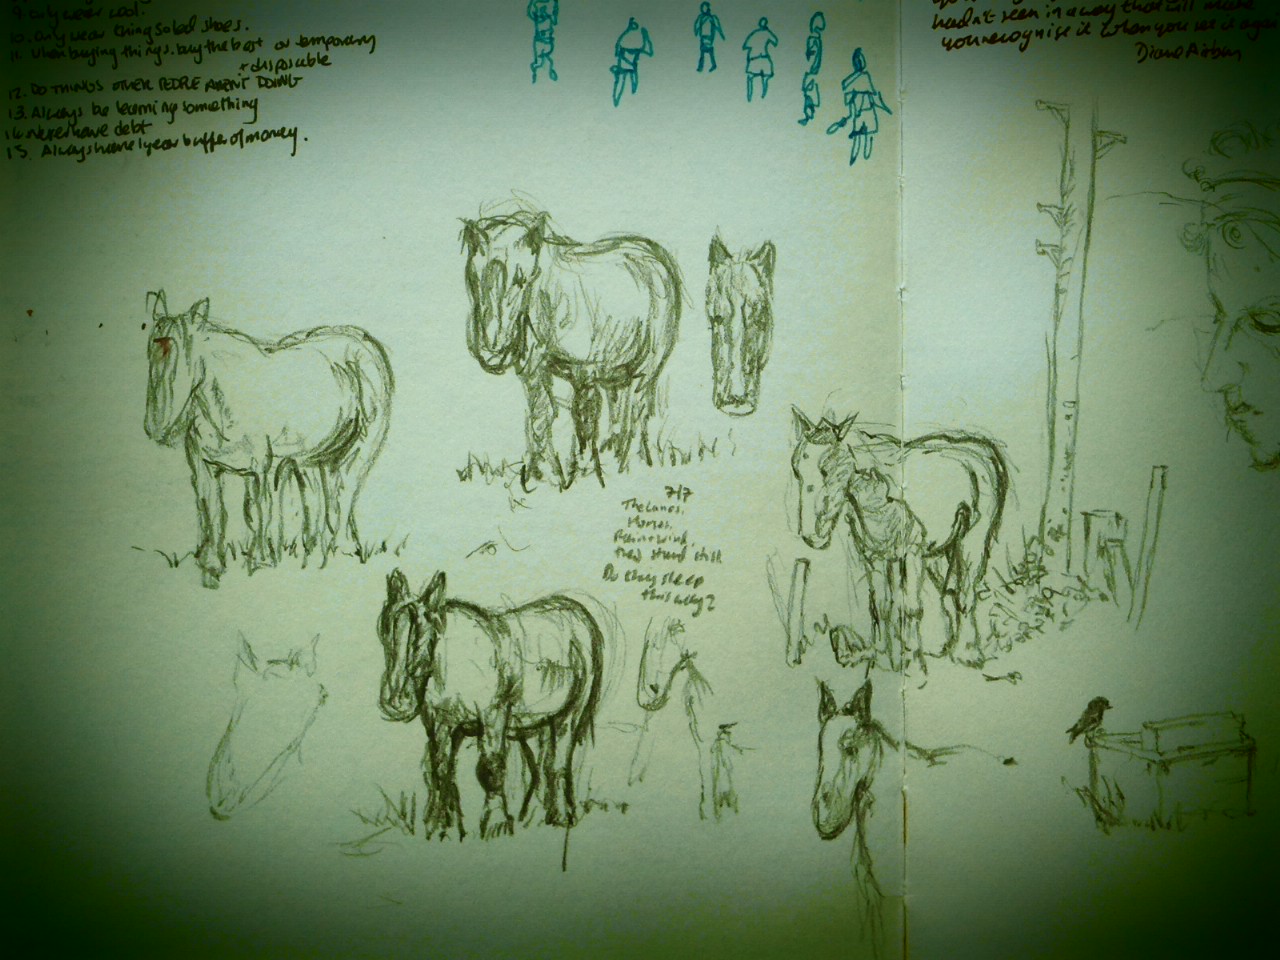 9. Only wear wool.
10. Only wear thing soled shoes.
11. When buying things. buy the best or temporary
+ disposable
12. DO THINGS OTHER PEOPLE AREN'T DOING
13. Always be learning something
14. Never have debt
15. Always have 1 year buffer of money.
hadn't seen in a way that will make
you recognise it when you see it again
Diane Arbus
7/7
The Lanes.
Horses.
Rain + wind.
They stand still.
Do they sleep
this way?